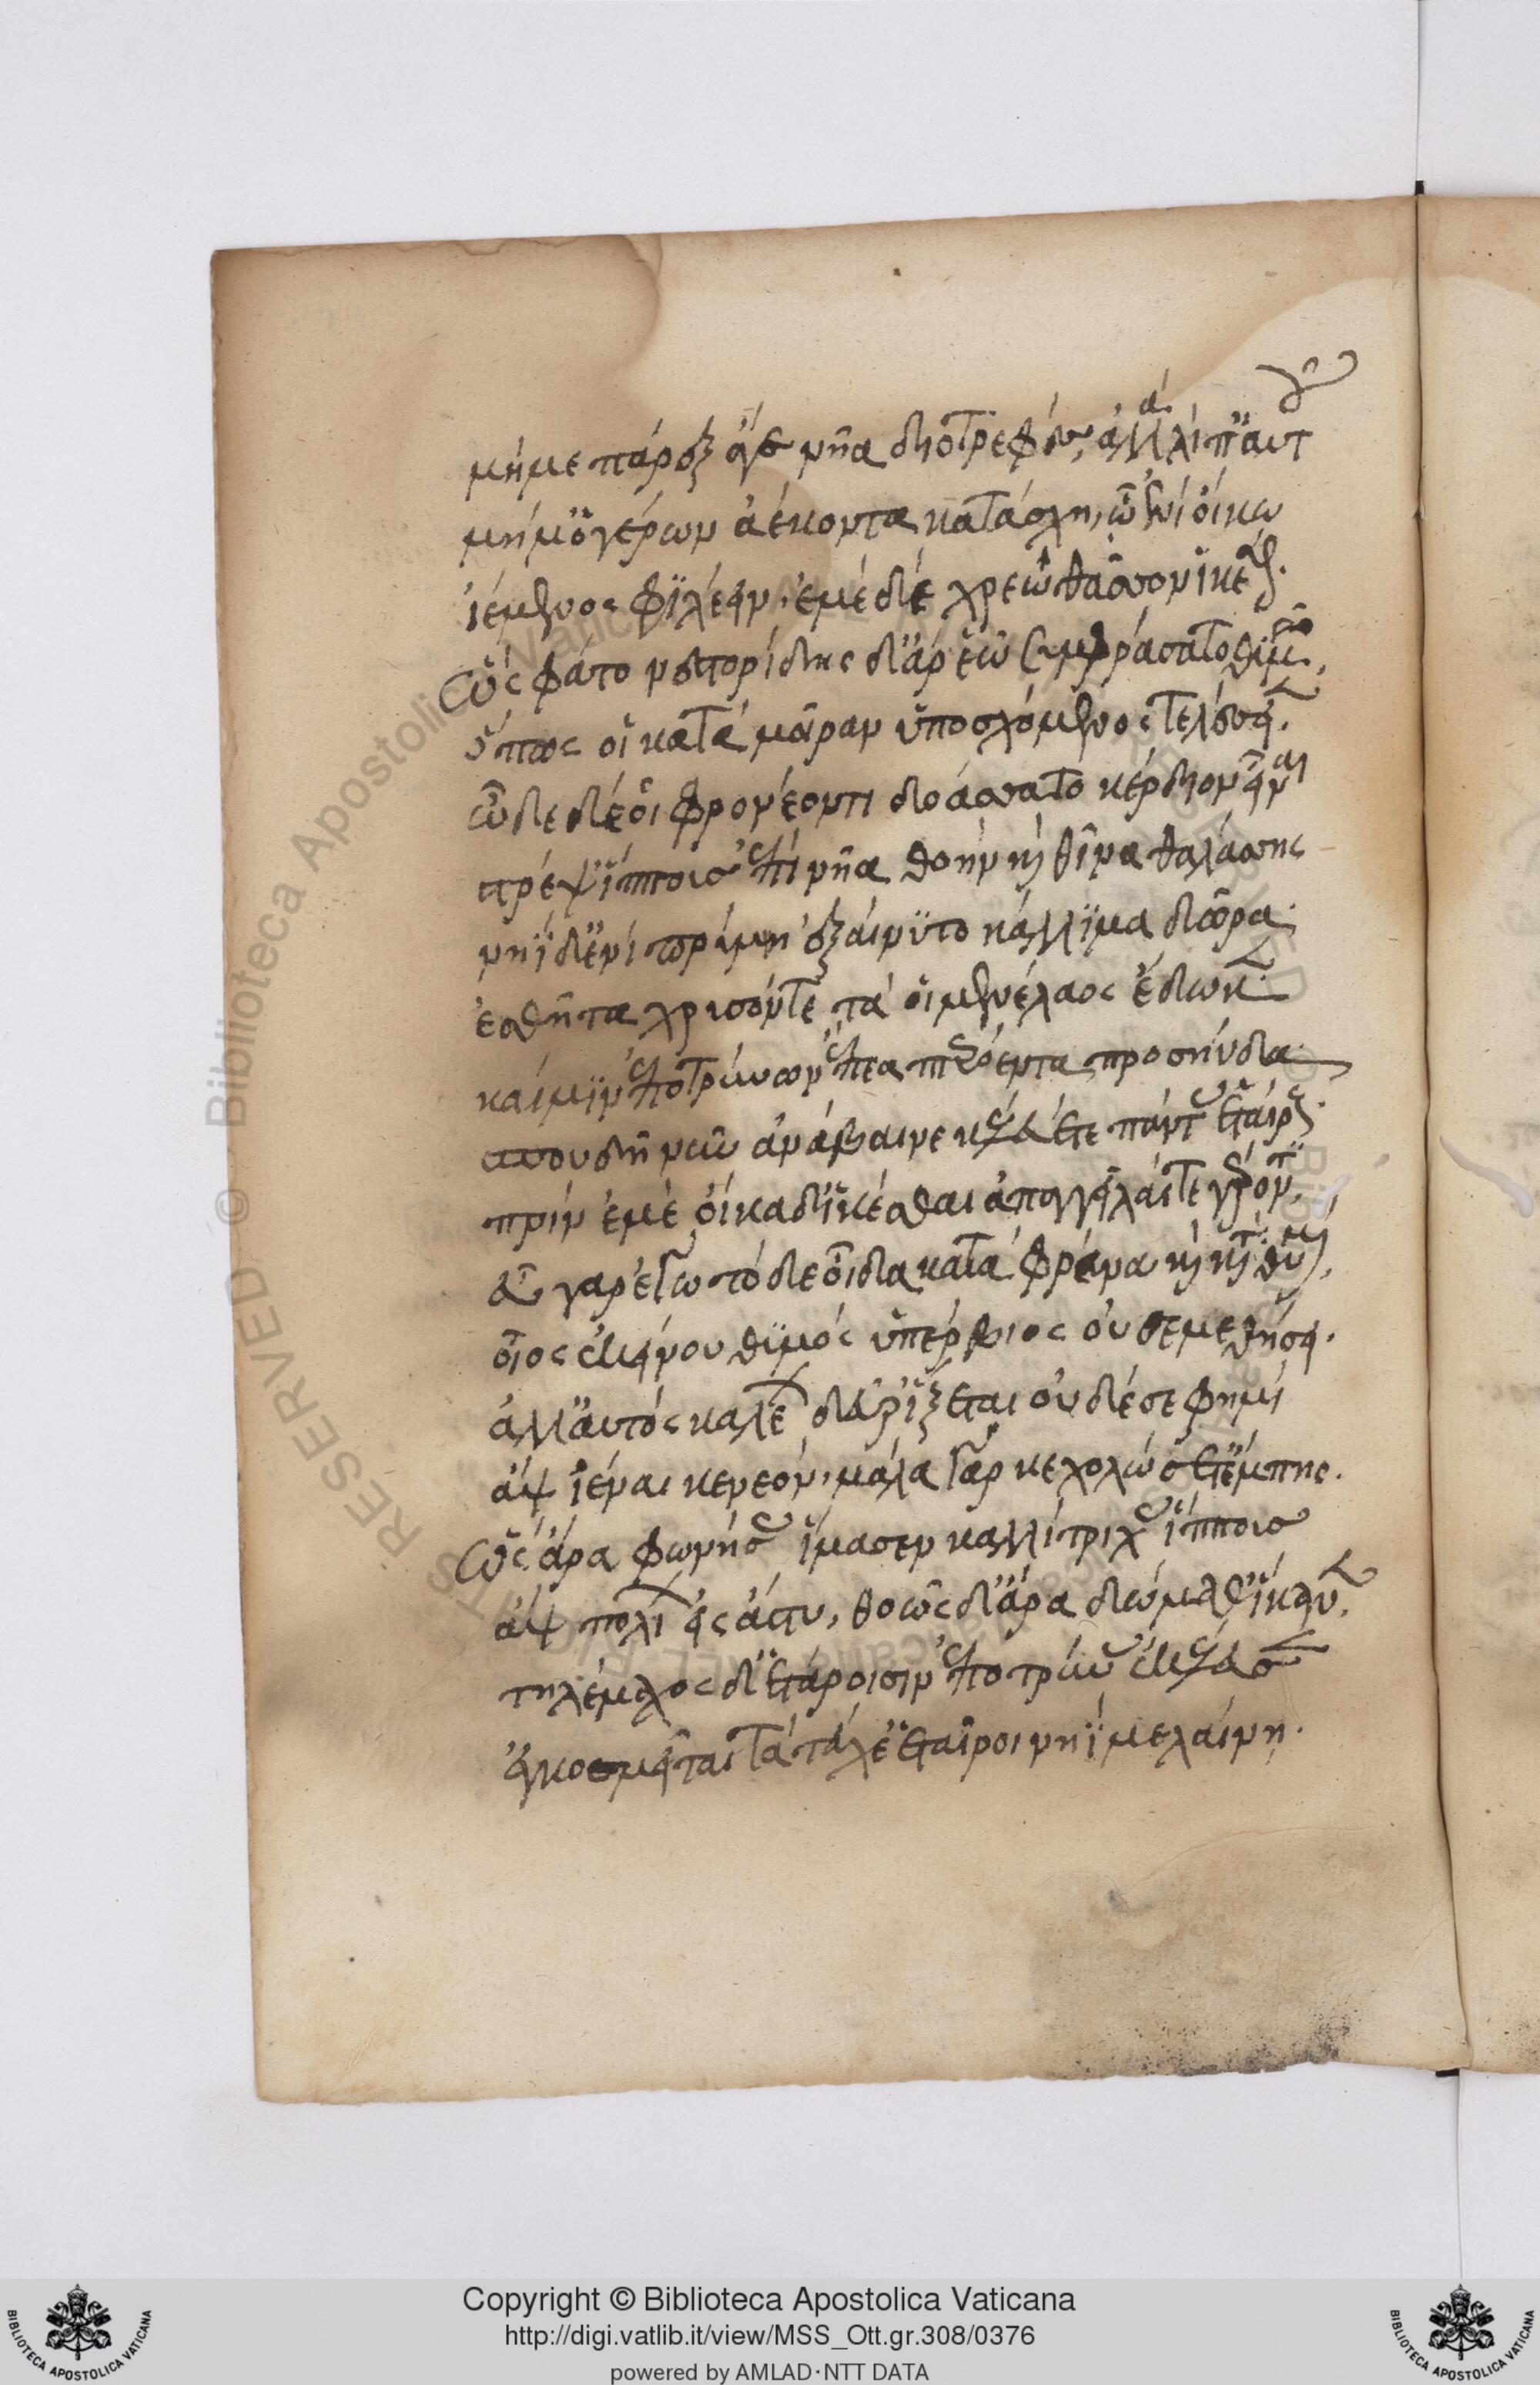 μή με πάρεξ ἄγε νῆα διοτρεφὲς, ἀλλὰ λίπ' αὐτοῦ
μή μ' ὁ γέρων ἀέκοντα κατάσχη, ὧ ἐνὶ οἴκω
ἱέμενος φιλέειν· ἐμὲ δὲ χρεὼ θᾶσσον ἱκέσθαι.
Ὣς φάτο νεστορίδης δ' ἄρ' ἑῶ συμφράσατο θυμῶ,
ὅππως οἱ κατὰ μοῖραν ὑποσχόμενος τελέσειεν.
ὧδε δέ οἱ φρονέοντι δοάσσατο κέρδιον εἶναι
στρέψ' ἵππους ἐπὶ νῆα θοὴν καὶ θῖνα θαλάσσης
νηῒ δ' ἐνὶ πρύμνη ἐξαίνυτο κάλλιμα δῶρα·
ἐσθῆτα χρυσόν τε τά οἱ μενέλαος ἔδωκεν·
καί μιν ἐποτρύνων ἔπεα πτερόεντα προσηύδα
σπουδῆ νῦν ἀνάβαινε κέλευέ τε πάντας ἑταίρους·
πρὶν ἐμὲ οἴκαδ' ἱκέσθαι ἀπαγγεῖλαί τε γέροντι,
εὖ γὰρ ἐγὼ τόδε οἶδα κατὰ φρένα καὶ κατὰ θυμὸν,
οἷος ἐκείνου θυμὸς ὑπέρβιος οὔ σε μεθήσει.
ἀλλ' αὐτὸς καλέων δεῦρ' ἵξεται οὐδέ σέ φημι
ἂψ ἰέναι κενεόν· μάλα γὰρ κεχολώσεται ἔμπης.
Ὣς ἄρα φωνήσας ἵμασεν καλλίτριχας ἵππους
ἂψ πυλίων εἰς ἄστυ, θοῶς δ' ἄρα δώμαθ' ἵκανεν.
τηλέμαχος δ' ἑτάροισιν ἐποτρύνας ἐκέλευσεν
ἐγκοσμεῖτε τὰ τεύχε' ἑταῖροι νηῒ μελαίνη·
Copyright © Biblioteca Apostolica Vaticana
http://digi.vatlib.it/view/MSS_Ott.gr.308/0376
powered by AMLAD·NTT DATA